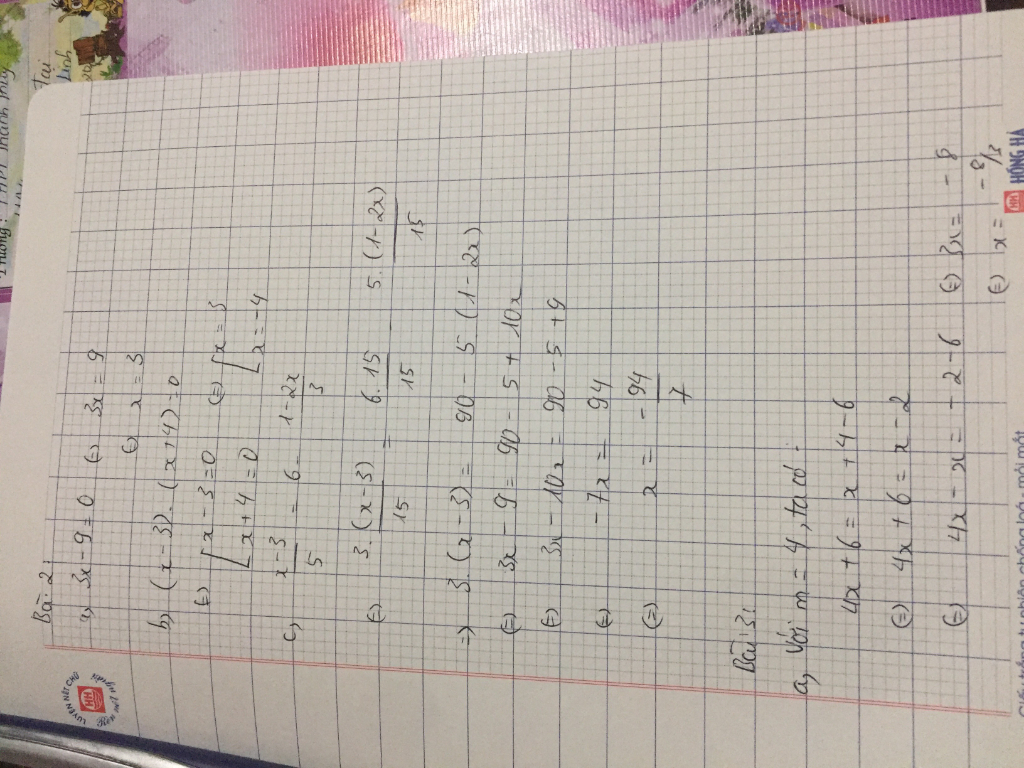 Bài 2:
a, 3x - 9 = 0 (=) 3x = 9
(=) x = 3
b, (x - 3).(x + 4) = 0
(=) [ x - 3 = 0 (=) [ x = 3
[ x + 4 = 0 [ x = -4
c, x - 3 / 5 = 6 - 1 - 2x / 3
(=) 3.(x - 3) / 15 = 6.15 / 15 5.(1 - 2x) / 15
=) 3.(x - 3) = 90 - 5(1 - 2x)
(=) 3x - 9 = 90 - 5 + 10x
(=) 3x - 10x = 90 - 5 + 9
(=) -7x = 94
(=) x = -94 / 7
Bài 3:
a, Với m = 4, ta có:
4x + 6 = x + 4 - 6
(=) 4x + 6 = x - 2
(=) 4x - x = -2 - 6 (=) 3x = -8
(=) x = -8/3
LUYỆN NÉT CHỮ
HH
HH HỒNG HÀ